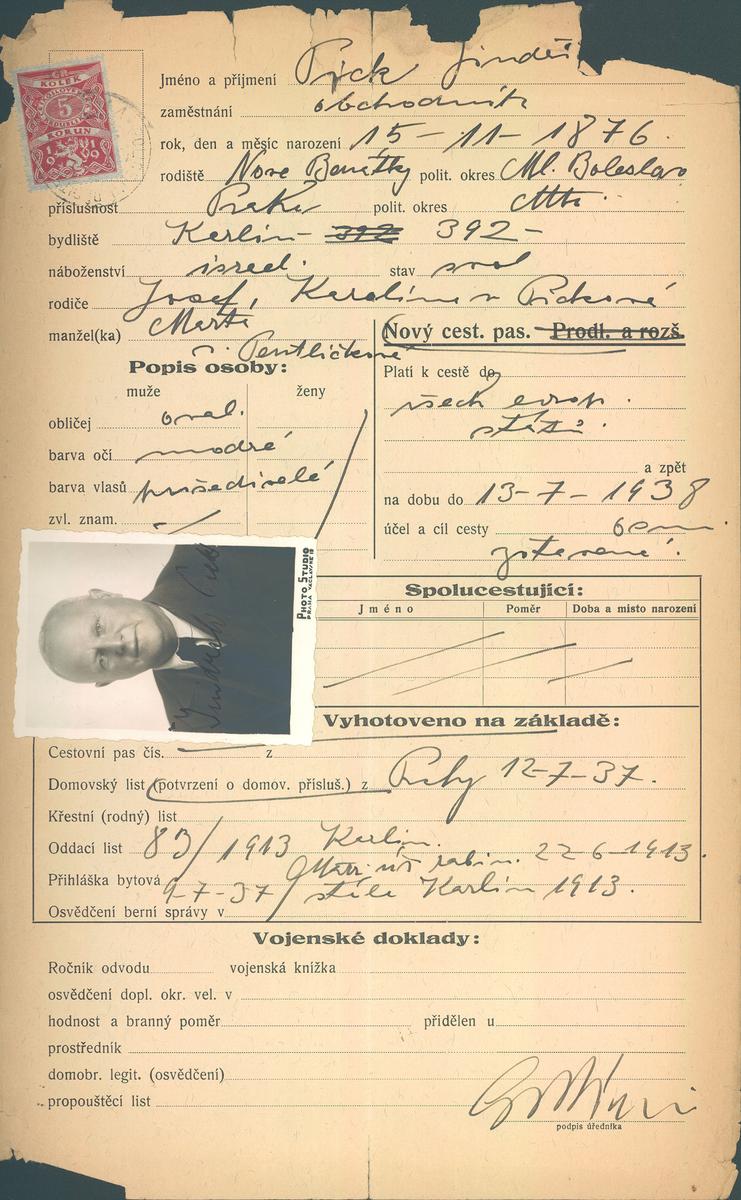 KOLEK
5
KORUN
1919
Jméno a příjmení Pick Jindř
zaměstnání obchodník
rok, den a měsíc narození 15-11-1876.
rodiště Nové Benátky polit. okres Ml. Boleslav
příslušnost Praha polit. okres
bydliště Karlín - 392 392 -
náboženství israel. stav
rodiče Josef, Karolína r. Picková
manžel(ka) Marta
r. Pentličková
Nový cest. pas. Prodl. a rozš.
Popis osoby:
muže ženy
obličej oval.
barva očí modré
barva vlasů prošedivělé
zvl. znam.
Platí k cestě do
všech evrop.
států.
a zpět
na dobu do 13-7-1938
účel a cíl cesty
PHOTO STUDIO
PRAHA VÁCLAVSKÉ 18
Jindřich Pick
Spolucestující:
Jméno Poměr Doba a místo narození
Vyhotoveno na základě:
Cestovní pas čís. z
Domovský list (potvrzení o domov. přísluš.) z Prahy 12-7-37.
Křestní (rodný) list
Oddací list 83/1913 Karlín.
Matr. úř. rabín. 22-6-1913.
Přihláška bytová 9-7-37/ stále Karlín 1913.
Osvědčení berní správy v
Vojenské doklady:
Ročník odvodu vojenská knížka
osvědčení dopl. okr. vel. v
hodnost a branný poměr přidělen u
prostředník
domobr. legit. (osvědčení)
propouštěcí list
podpis úředníka